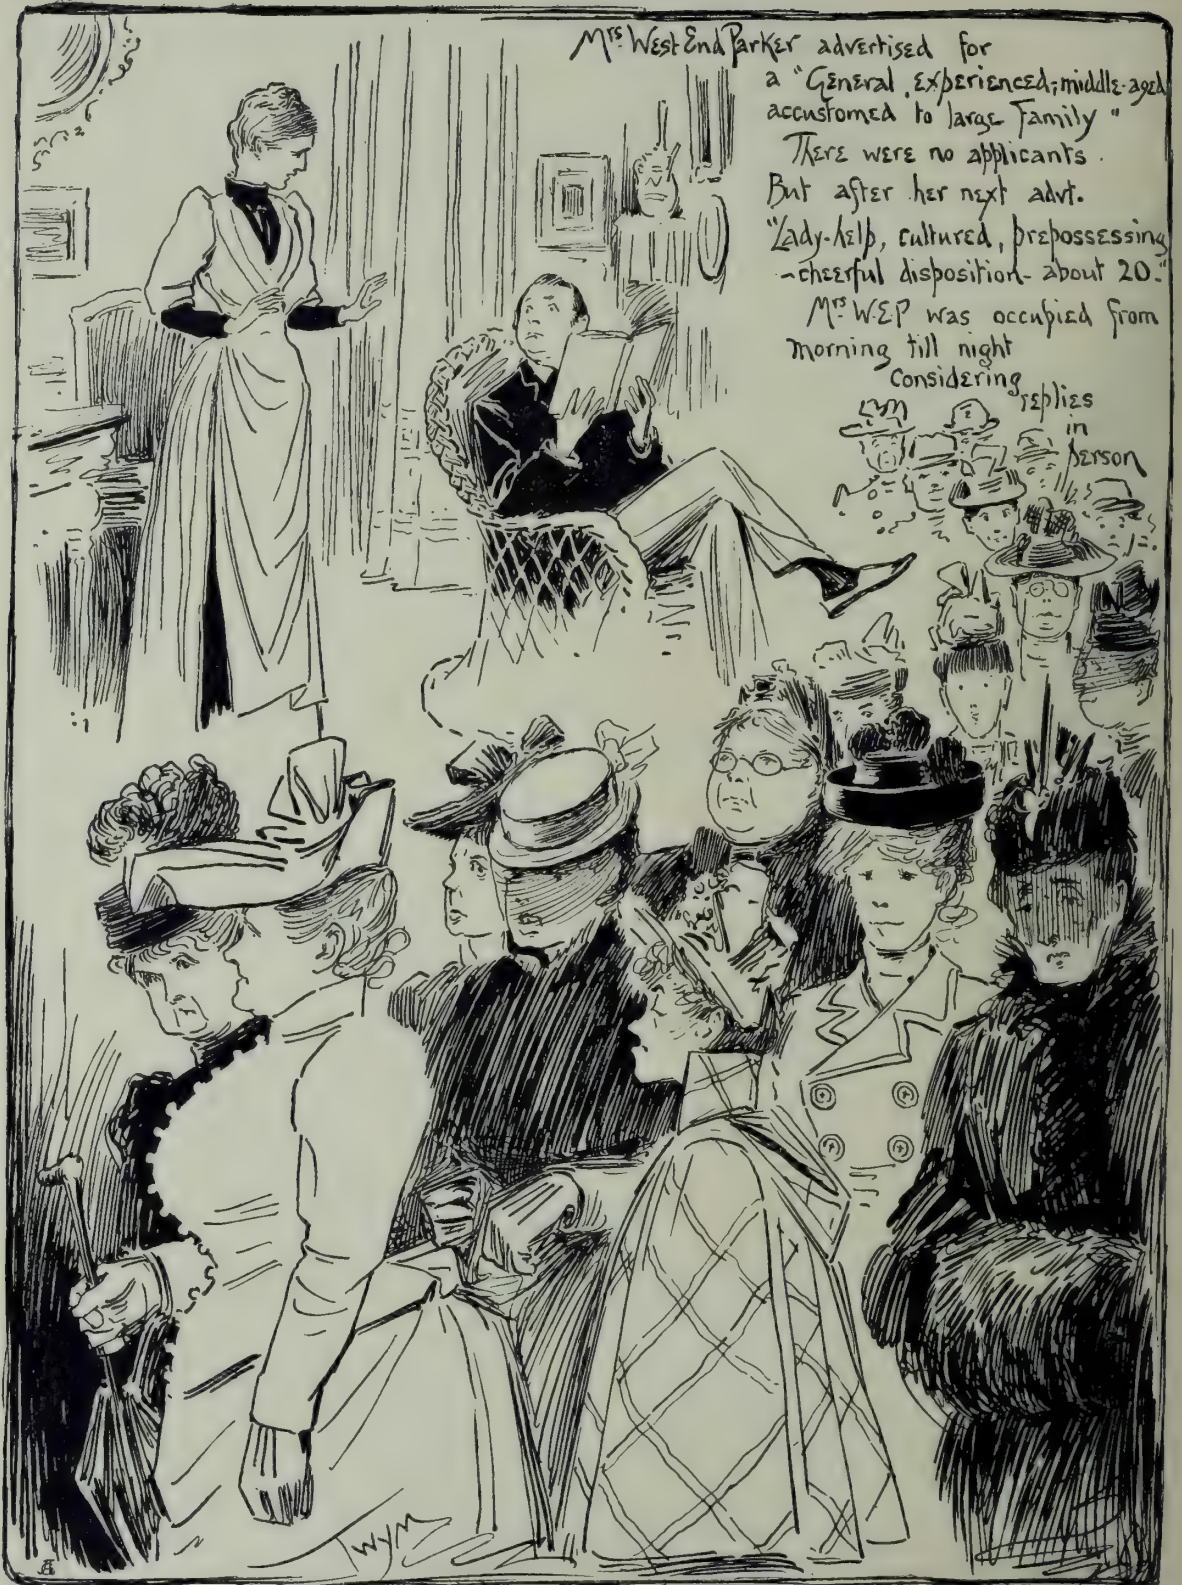 Mrs West End Parker advertised for
a "General, experienced; middle-aged
accustomed to large Family"
There were no applicants.
But after her next advt.
"Lady-help, cultured, prepossessing
- cheerful disposition - about 20."
Mrs W.E.P was occupied from
morning till night
considering
replies
in
person
Wym